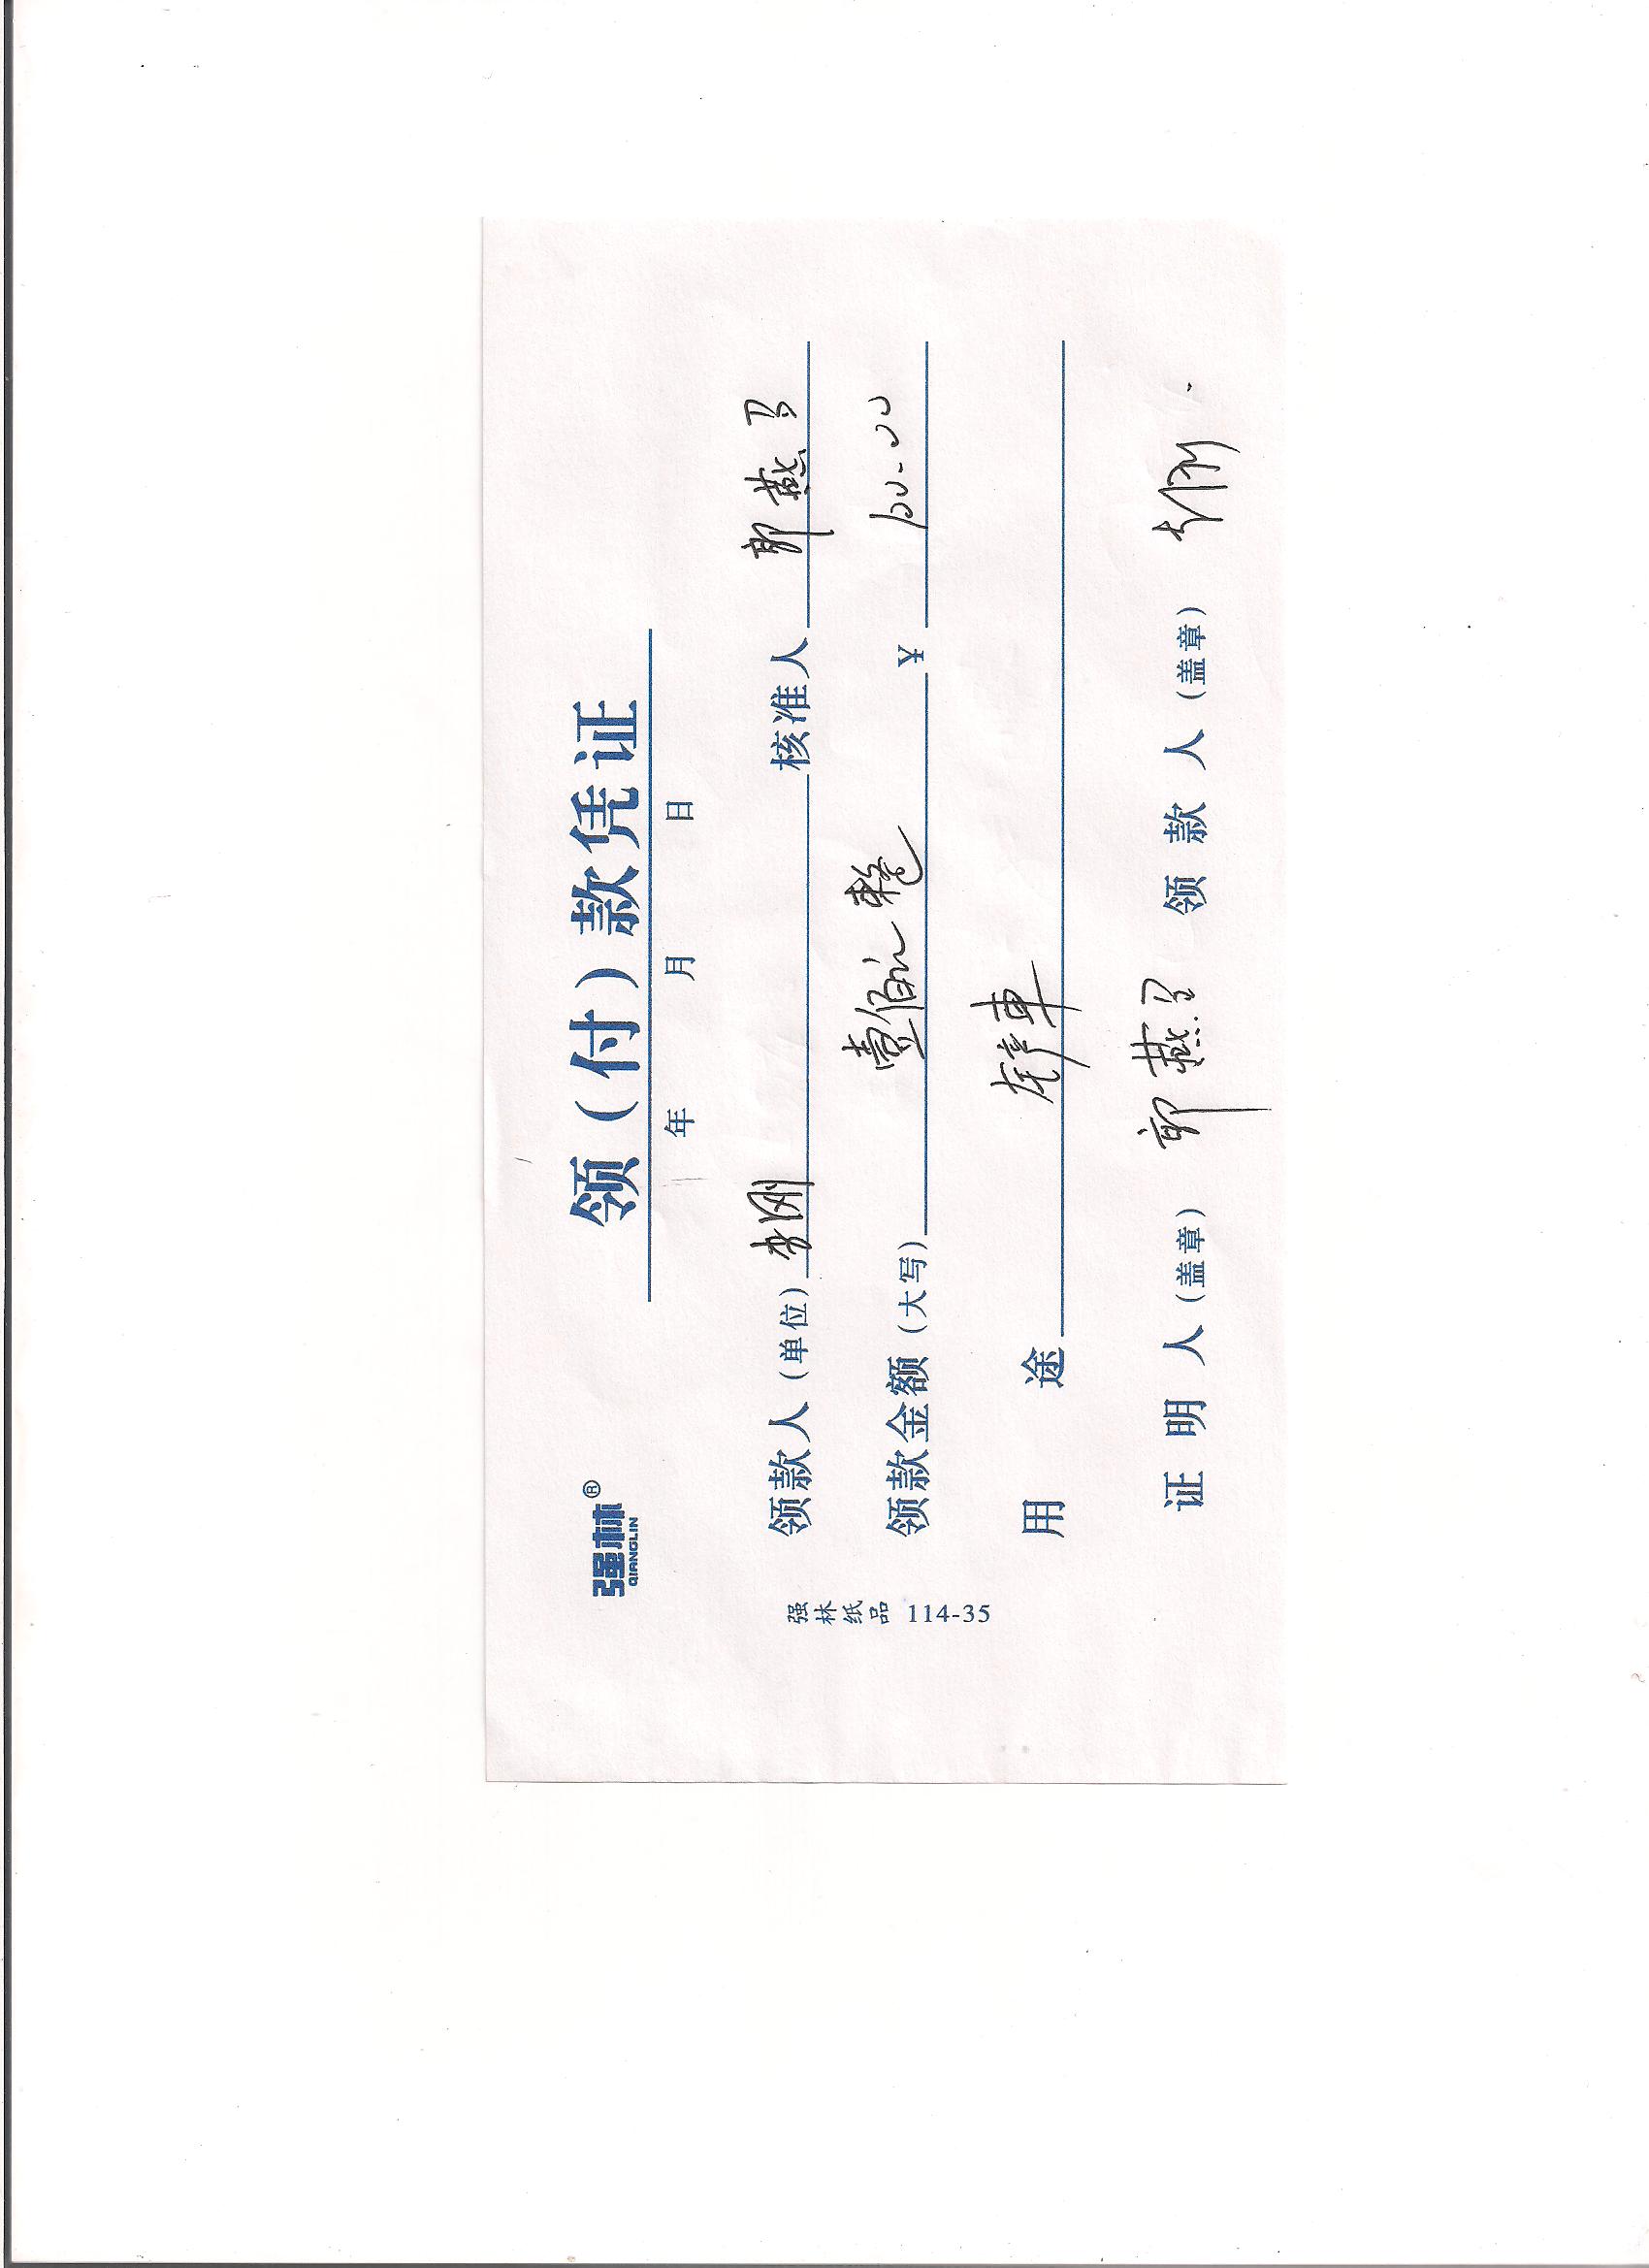 强林®
QIANGLIN
领（付）款凭证
年 月 日
领款人（单位）李刚 核准人 郭燕
领款金额（大写）壹佰元整 ¥ 100.00
用途 车
证明人（盖章）郭燕 领款人（盖章）
强林纸品 114-35